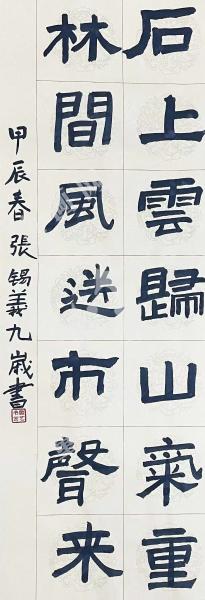 石上雲歸山氣重
林間風送市聲来
甲辰春張錫義九歲書